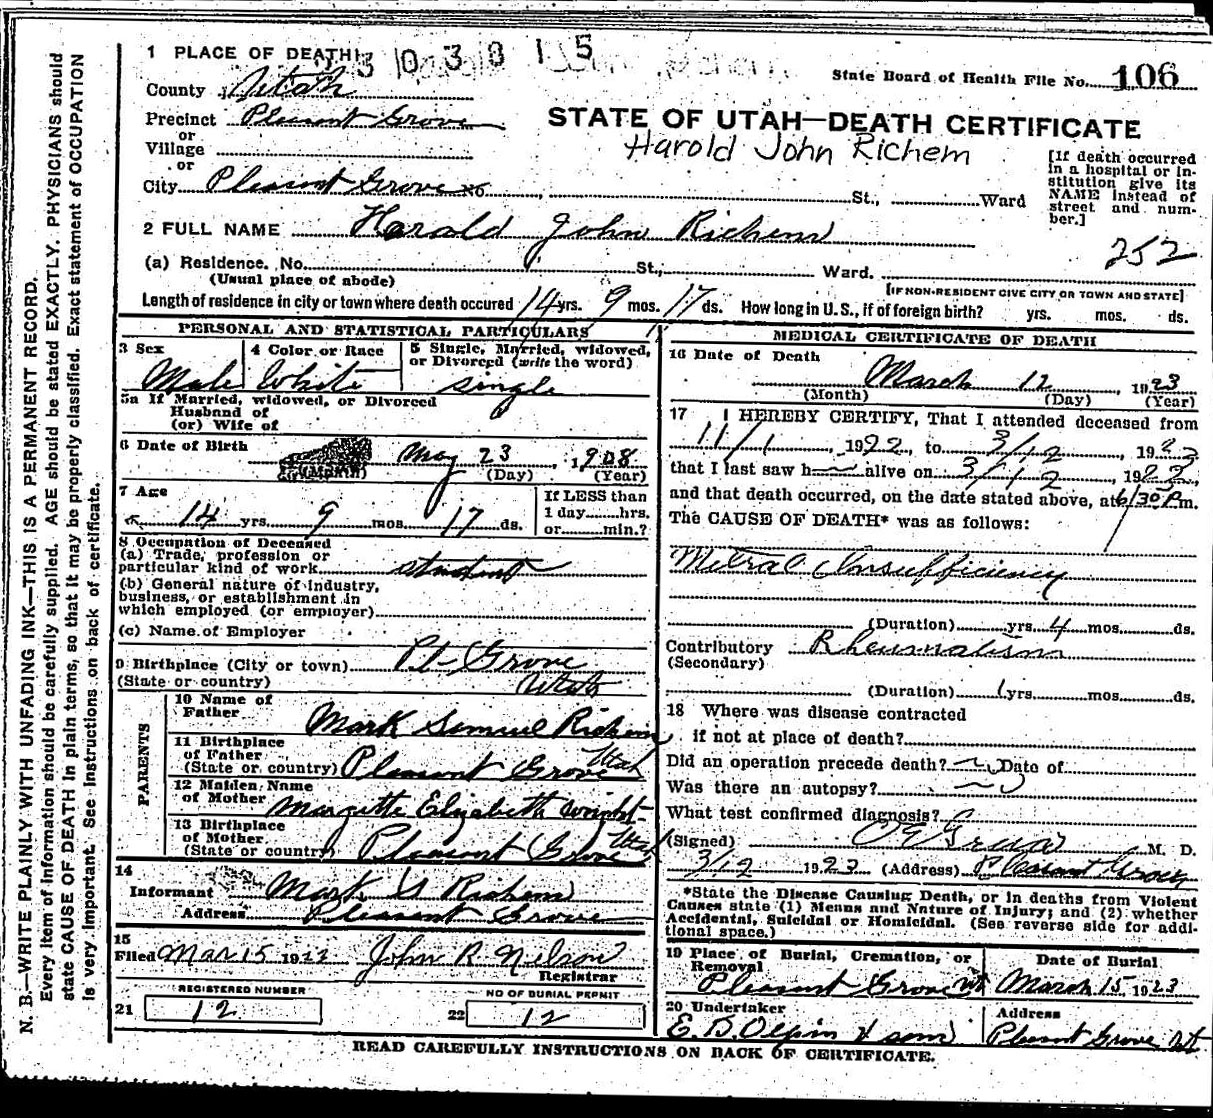 N. B.—WRITE PLAINLY WITH UNFADING INK—THIS IS A PERMANENT RECORD.
Every item of information should be carefully supplied. AGE should be stated EXACTLY. PHYSICIANS should
state CAUSE OF DEATH in plain terms, so that it may be properly classified. Exact statement of OCCUPATION
is very important. See instructions on back of certificate.
1 PLACE OF DEATH
State Board of Health File No. 106
County Utah
Precinct Pleasant Grove
or
Village
or
City Pleasant Grove No. St., Ward
STATE OF UTAH—DEATH CERTIFICATE
Harold John Richem
[If death occurred
in a hospital or in-
stitution give its
NAME instead of
street and num-
ber.]
2 FULL NAME Harald John Richens
252
(a) Residence. No. St.; Ward.
(Usual place of abode)
[IF NON-RESIDENT GIVE CITY OR TOWN AND STATE]
Length of residence in city or town where death occured 14 yrs. 9 mos. 17 ds. How long in U. S., if of foreign birth? yrs. mos. ds.
PERSONAL AND STATISTICAL PARTICULARS
3 Sex
Male
4 Color or Race
White
5 Single, Married, widowed,
or Divorced (write the word)
single
5a If Married, widowed, or Divorced
Husband of
(or) Wife of
6 Date of Birth May 23, 1908
(Month) (Day) (Year)
7 Age
14 yrs. 9 mos. 17 ds.
If LESS than
1 day hrs.
or min.?
8 Occupation of Deceased
(a) Trade, profession or
particular kind of work student
(b) General nature of industry,
business, or establishment in
which employed (or employer)
(c) Name of Employer
9 Birthplace (City or town) Pl- Grove
(State or country) Utah
PARENTS
10 Name of
Father Mark Samuel Richens
11 Birthplace
of Father
(State or country) Pleasant Grove Utah
12 Maiden Name
of Mother Margette Elizabeth Wright
13 Birthplace
of Mother
(State or country) Pleasant Grove Utah
14
Informant Mark S Richens
Address Pleasant Grove
15
Filed Mar 15 1923 John R Nelson
Registrar
REGISTERED NUMBER
21 12
NO OF BURIAL PERMIT
22 12
MEDICAL CERTIFICATE OF DEATH
16 Date of Death
March 12 1923
(Month) (Day) (Year)
17 I HEREBY CERTIFY, That I attended deceased from
11/1, 1922, to 3/12, 1923
that I last saw h alive on 3/12, 1923,
and that death occurred, on the date stated above, at 6/30 P m.
The CAUSE OF DEATH* was as follows:
Mitral Insufficiency
(Duration) yrs. 4 mos. ds.
Contributory Rheumatism
(Secondary)
(Duration) 1 yrs. mos. ds.
18 Where was disease contracted
if not at place of death?
Did an operation precede death? Date of
Was there an autopsy?
What test confirmed diagnosis?
(Signed) O E Grua M. D.
3/12 1923 (Address) Pleasant Grove
*State the Disease Causing Death, or in deaths from Violent
Causes state (1) Means and Nature of Injury; and (2) whether
Accidental, Suicidal or Homicidal. (See reverse side for addi-
tional space.)
19 Place of Burial, Cremation, or
Removal
Pleasant Grove Ut
Date of Burial
March 15, 1923
20 Undertaker
E. D. Olpin & son
Address
Pleasant Grove Ut
READ CAREFULLY INSTRUCTIONS ON BACK OF CERTIFICATE.